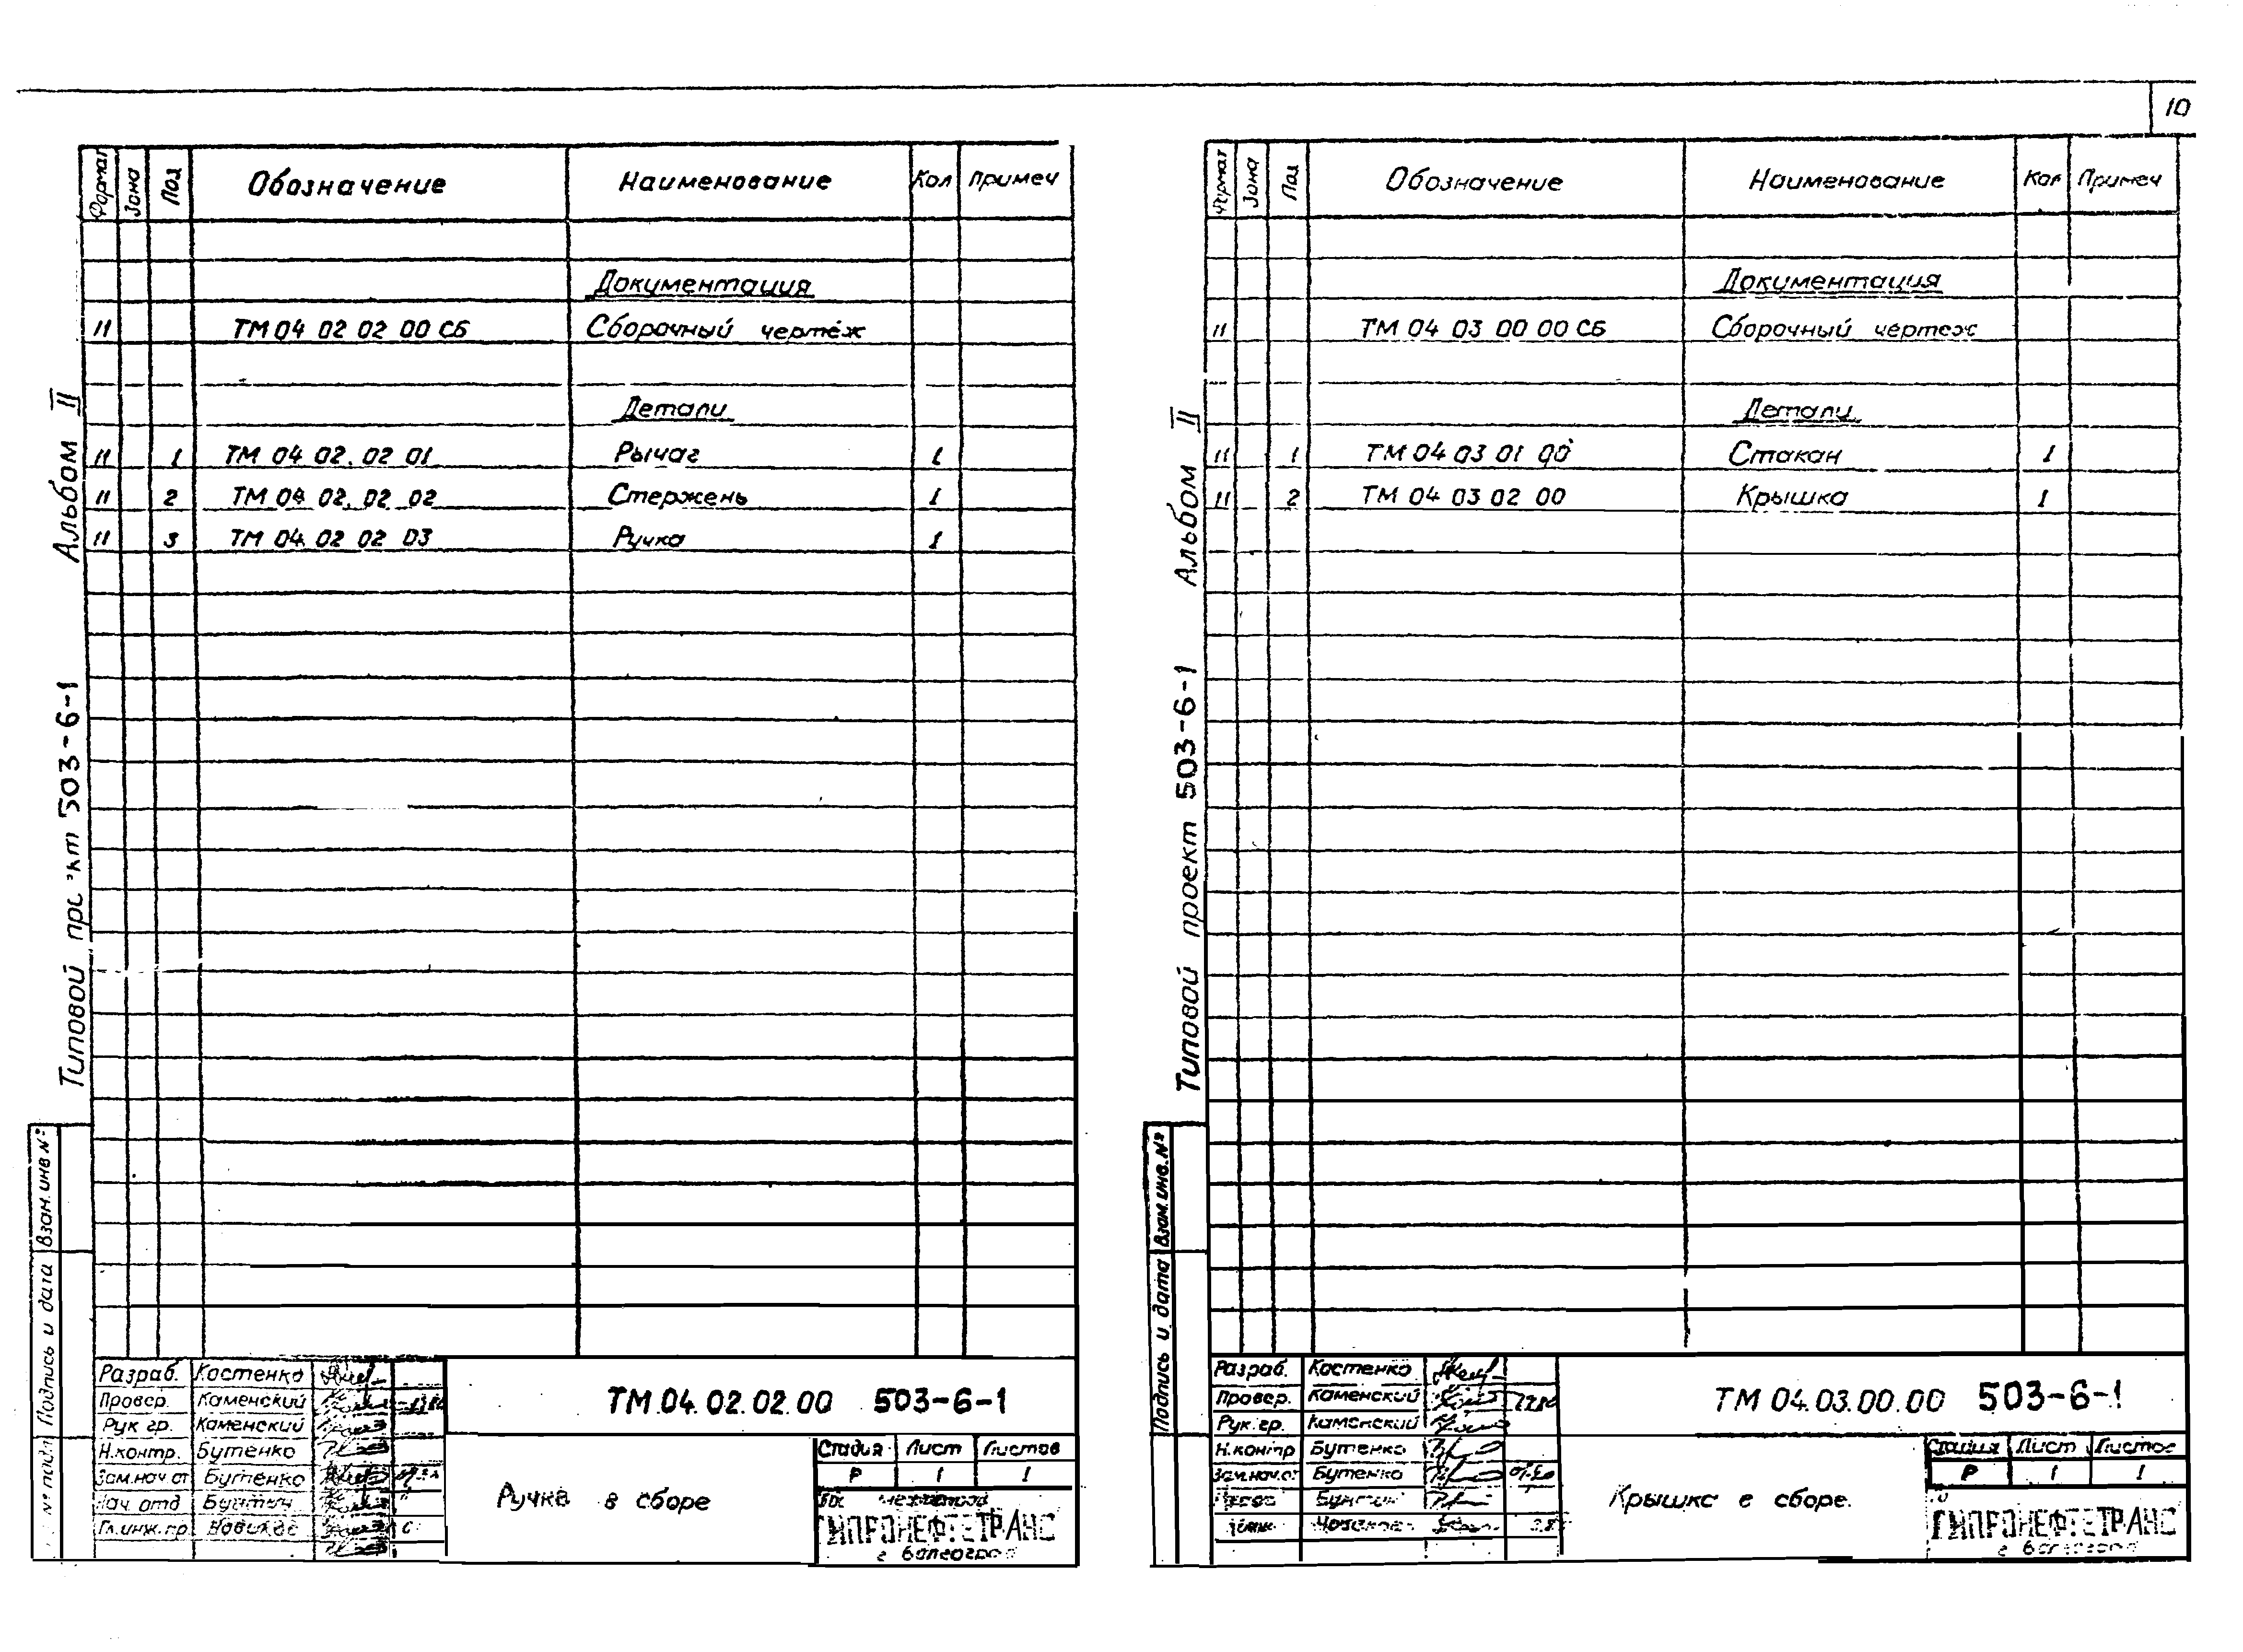 10
Формат Зона Поз Обозначение Наименование Кол Примеч
Документация
11 ТМ 04 02 02 00 СБ Сборочный чертёж
Детали
11 1 ТМ 04 02. 02 01 Рычаг 1
11 2 ТМ 04 02. 02 02 Стержень 1
11 3 ТМ 04. 02 02 03 Ручка 1
Типовой 503-6-1 Альбом II
Взам. инв №
Подпись и дата
Разраб. Костенко
Провер. Каменский
Рук гр. Каменский
Н.контр. Бутенко
Зам.нач от Бутенко
отд
Гл.инж.пр.
ТМ 04. 02. 02. 00 503-6-1
Ручка в сборе
Стадия Лист Листов
Р 1 1
ГИПРОНЕФТЕТРАНС
г Волгоград
Формат Зона Поз Обозначение Наименование Кол Примеч
Документация
11 ТМ 04 03 00 00 СБ Сборочный чертеж
Детали
11 1 ТМ 04 03 01 00 Стакан 1
11 2 ТМ 04 03 02 00 Крышка 1
Типовой проект 503-6-1 Альбом II
Взам. инв. №
Подпись и дата
Разраб. Костенко
Провер. Каменский
Рук. гр. Каменский
Н.контр Бутенко
Зам.нач.от Бутенко
ТМ 04. 03. 00. 00 503-6-1
Крышка в сборе.
Стадия Лист Листов
Р 1 1
ГИПРОНЕФТЕТРАНС
г Волгоград